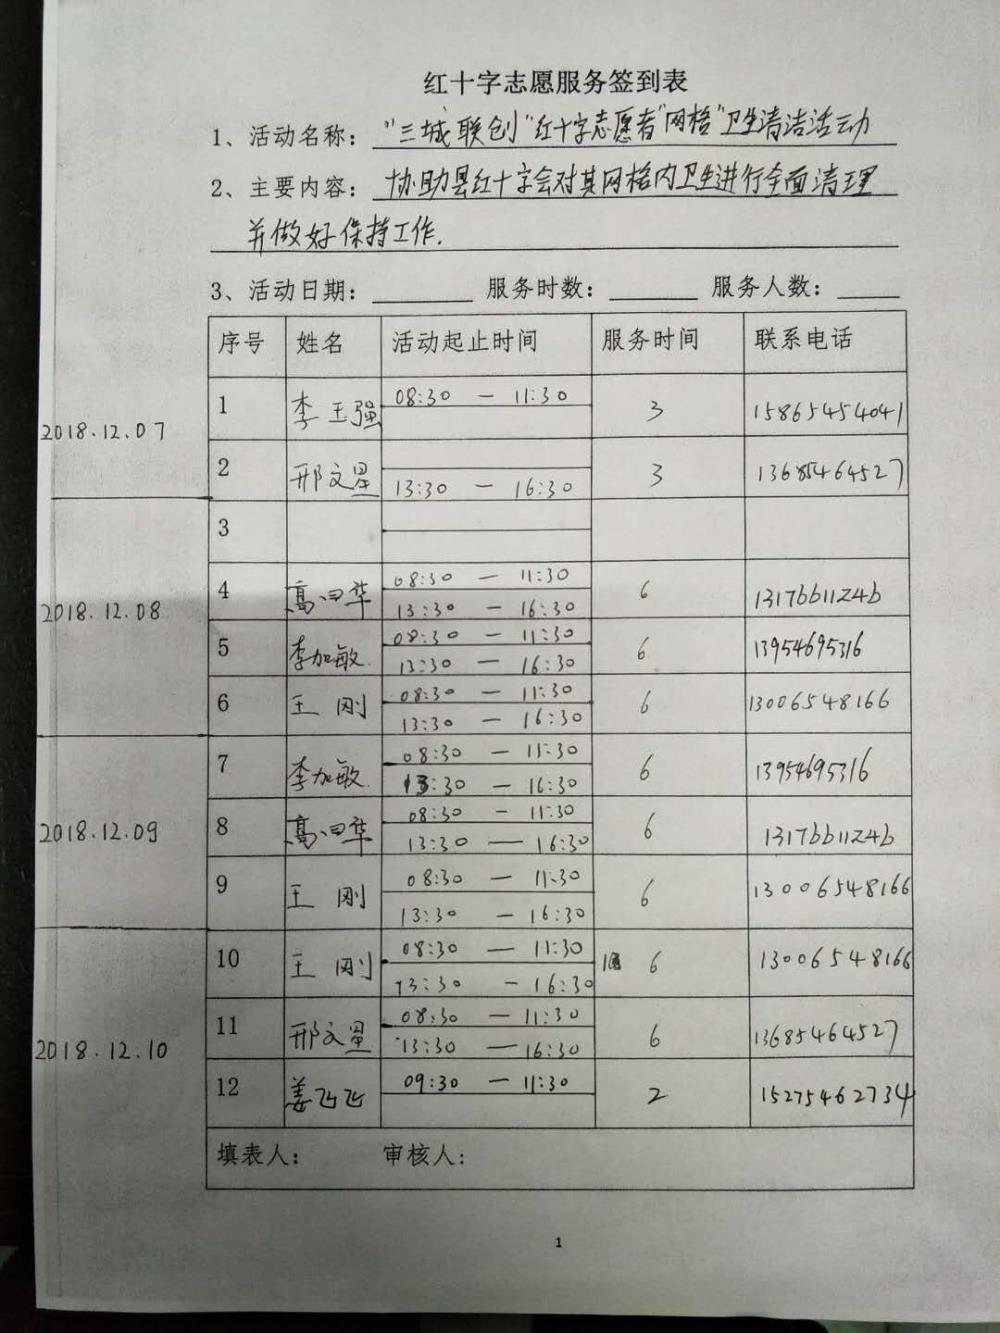 红十字志愿服务签到表
1、活动名称："三城联创"红十字志愿者"网格"卫生清洁活动
2、主要内容：协助县红十字会对其网格内卫生进行全面清理
并做好保持工作.
3、活动日期： 服务时数： 服务人数：
序号 姓名 活动起止时间 服务时间 联系电话
2018.12.07
1 李玉强 08:30 — 11:30 3 15865454041
2 邢文星 13:30 — 16:30 3 13685464527
3
2018.12.08
4 高 华 08:30 — 11:30 13:30 — 16:30 6 13176611246
5 李加敏 08:30 — 11:30 13:30 — 16:30 6 13954695316
6 王刚 08:30 — 11:30 13:30 — 16:30 6 13006548166
2018.12.09
7 李加敏 08:30 — 11:30 13:30 — 16:30 6 13954695316
8 高 华 08:30 — 11:30 13:30 — 16:30 6 13176611246
9 王刚 08:30 — 11:30 13:30 — 16:30 6 13006548166
2018.12.10
10 王刚 08:30 — 11:30 13:30 — 16:30 6 13006548166
11 邢文星 08:30 — 11:30 13:30 — 16:30 6 13685464527
12 姜飞飞 09:30 — 11:30 2 15275462734
填表人： 审核人：
1